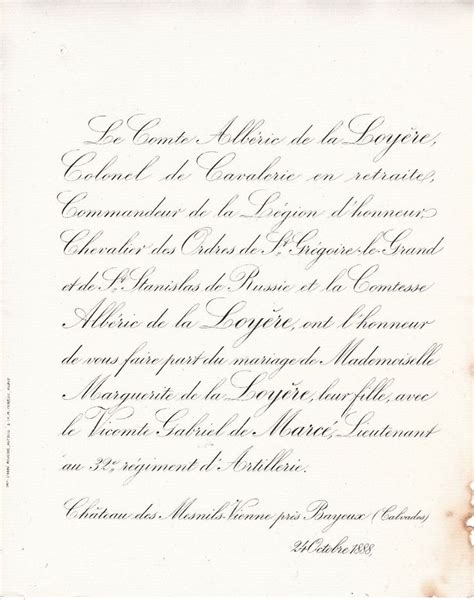 Le Comte Albéric de la Loyère,
Colonel de Cavalerie en retraite,
Commandeur de la Légion d'honneur,
Chevalier des Ordres de St. Grégoire-le-Grand
et de St. Stanislas de Russie et la Comtesse
Albéric de la Loyère, ont l'honneur
de vous faire part du mariage de Mademoiselle
Marguerite de la Loyère, leur fille, avec
le Vicomte Gabriel de Marcé, Lieutenant
au 32e. régiment d'Artillerie.
Château des Mesnils-Vienne près Bayeux (Calvados)
24 Octobre 1888,